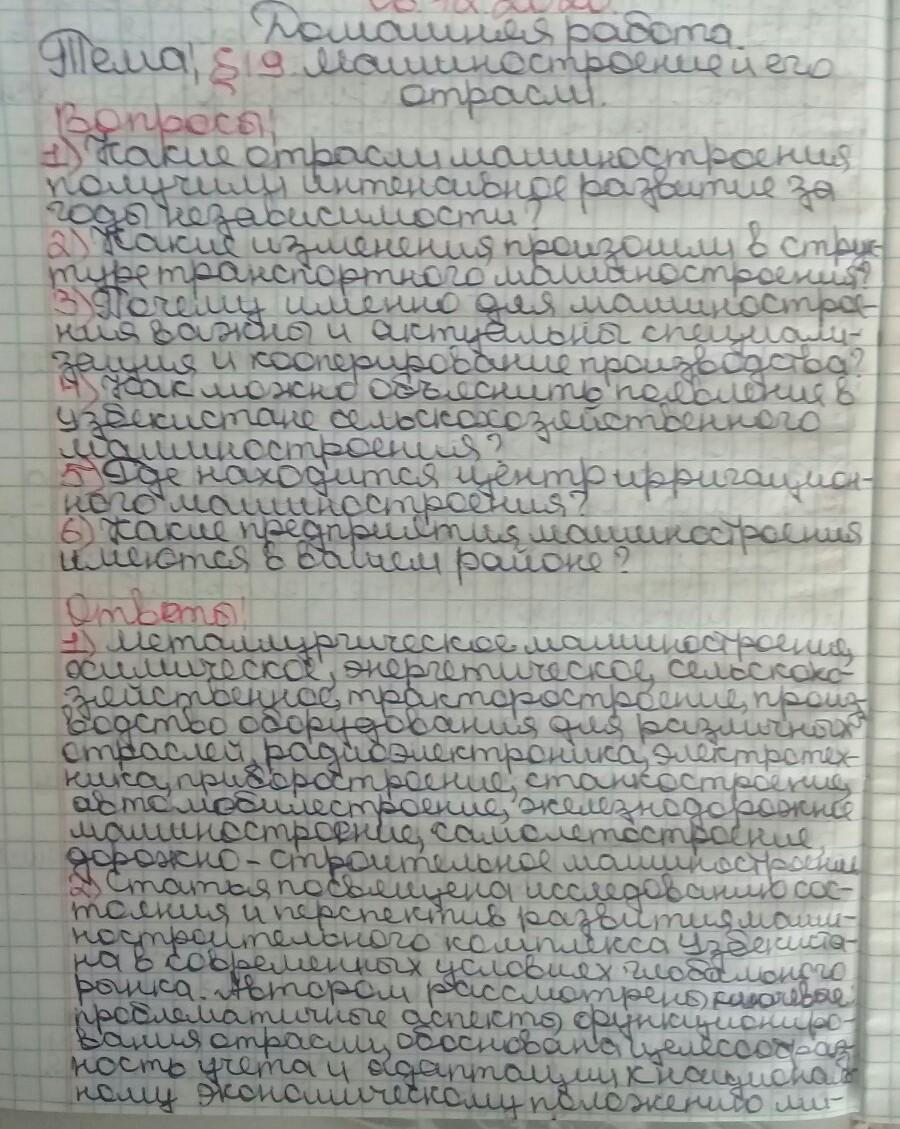 Домашняя работа.
Тема: § 19. Машиностроение и его
отрасли.
Вопросы:
1) Какие отрасли машиностроения
получили интенсивное развитие за
годы независимости?
2) Какие изменения произошли в струк-
туре транспортного машиностроения?
3) Почему именно для машинострое-
ния важны и актуальны специали-
зация и кооперирование производства?
4) Как можно объяснить появление в
Узбекистане сельскохозяйственного
машиностроения?
5) Где находится центр ирригацион-
ного машиностроения?
6) Какие предприятия машиностроения
имеются в вашем районе?
Ответы:
1) Металлургическое машиностроение,
химическое, энергетическое, сельскохо-
зяйственное, тракторостроение, произ-
водство оборудования для различных
отраслей, радиоэлектроника, электротех-
ника, приборостроение, станкостроение,
автомобилестроение, железнодорожное
машиностроение, самолетостроение,
дорожно-строительное машиностроение
2) Статья посвящена исследованию сос-
тояния и перспектив развития маши-
ностроительного комплекса Узбекиста-
на в современных условиях глобального
рынка. Автором рассмотрены ключевые
проблематичные аспекты функциониро-
вания отрасли, обоснована целесообраз-
ность учета и адаптации к национал
ному экономическому положению ми-